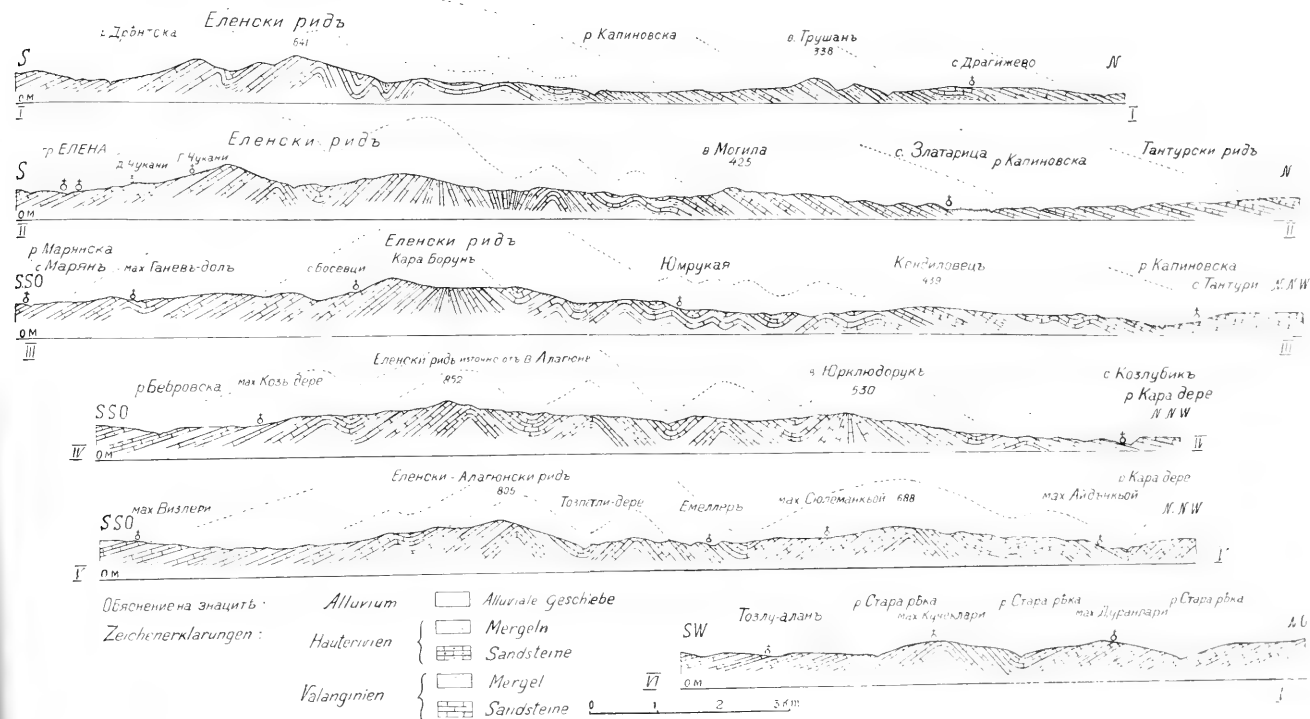 Еленски ридъ
641
р Капиновска
в. Трушанъ
338
с Драгижево
S
N
0 м
I
I
гр ЕЛЕНА
Д Чукани
Г Чукани
Еленски ридъ
в Могила
425
с. Златарица
р Капиновска
Тантурски ридъ
S
N
0 м
II
II
р Марянска
с Марянъ
мах Ганевъ-долъ
с Босевци
Еленски ридъ
Кара Борунъ
Юмрукая
р Капиновска
с Тантури
SSO
N N W
0 м
III
III
р Бебровска
мах Козь дере
Еленски ридъ източно отъ В Алагюне
852
Юрклюдорукъ
530
с Козлубикъ
р Кара дере
SSO
N N W
IV
0 м
IV
мах Визлери
Еленски - Алагюнски ридъ
Емеллеръ
мах Сюлеманкьой 688
мах Айдънкьой
Кара дере
SSO
N. N W
V
0 м
Обяснение на знацитѣ :
Zeichenerklarungen :
Alluvium
Alluviale Geschiebe
Hauterivien
Mergeln
Sandsteine
Valanginien
Mergel
Sandsteine
SW
Тозлу-аланъ
р Стара рѣка
мах Кучюклари
р Стара рѣка
мах Дурандари
р Стара рѣка
VI
0 м
0 1 2 3 км